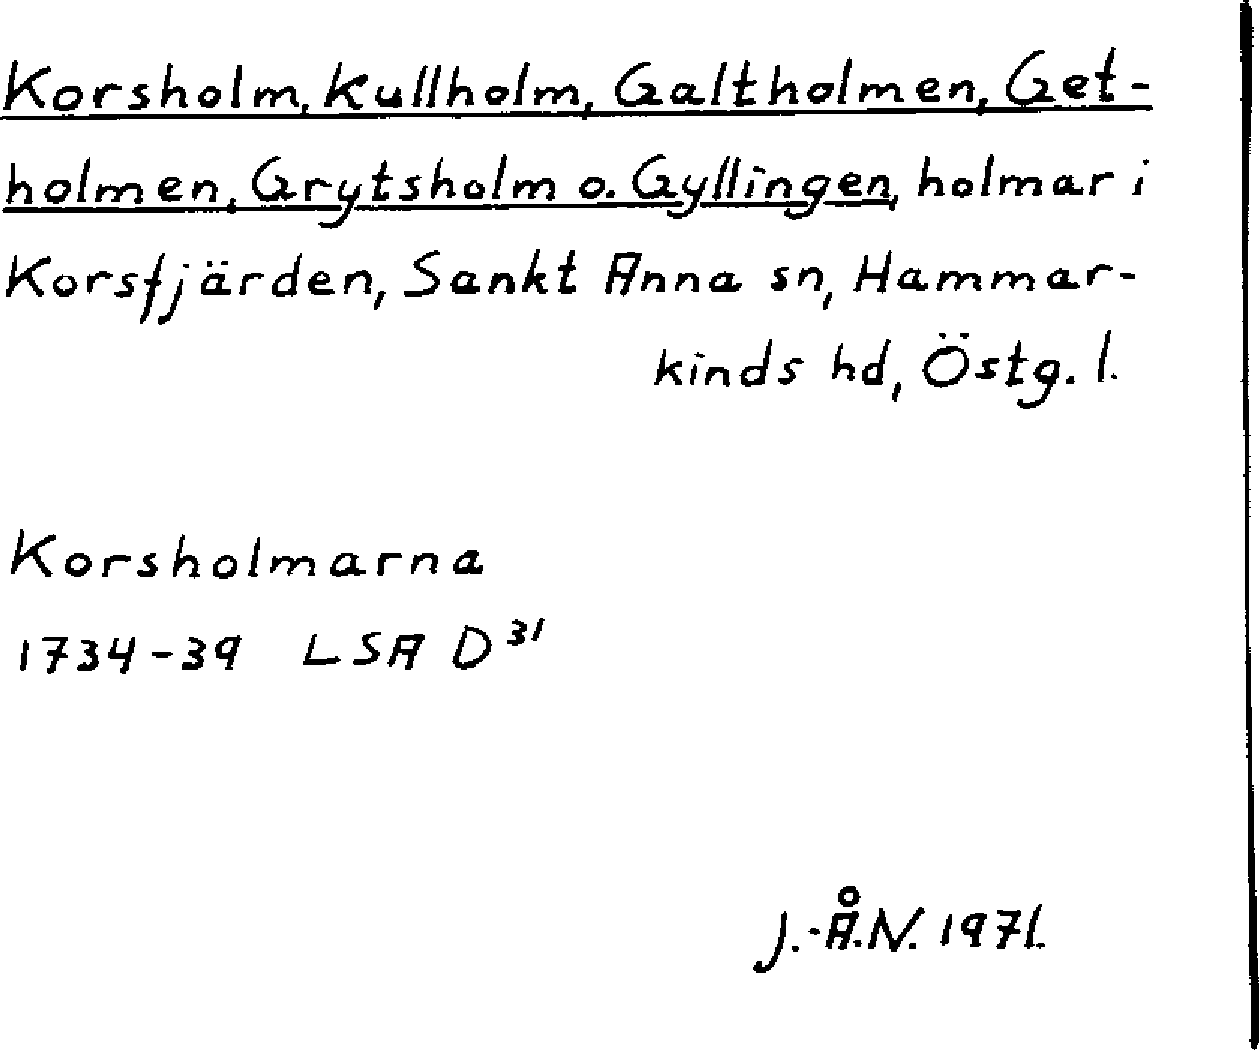 Korsholm, Kullholm, Galtholmen, Get-
holmen, Grytsholm o. Gyllingen, holmar i
Korsfjärden, Sankt Anna sn, Hammar-
kinds hd, Östg. l.
Korsholmarna
1734-39 LSA D³¹
J.-Å.N. 1971.